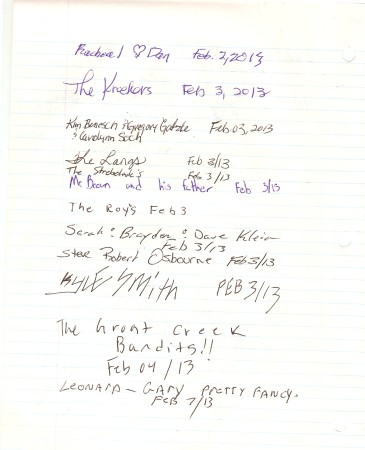 Racheal ♡ Dan Feb. 2, 2013
The Kroekers Feb 3, 2013
Kim Benesch & Gregory
& Carolynn Soch Feb 03, 2013
The Langs Feb 3/13
The Feb 3/13
Mr Bean and his father Feb 3/13
The Roy's Feb 3
Sarah & Brayden & Dave Klein
Feb 3/13
Steve Robert Osbourne Feb 3/13
KYLE SMITH FEB 3/13
The Groat Creek
Bandits!!
Feb 04/13
LEONARD - GARY PRETTY FANCY.
FEB 7/13